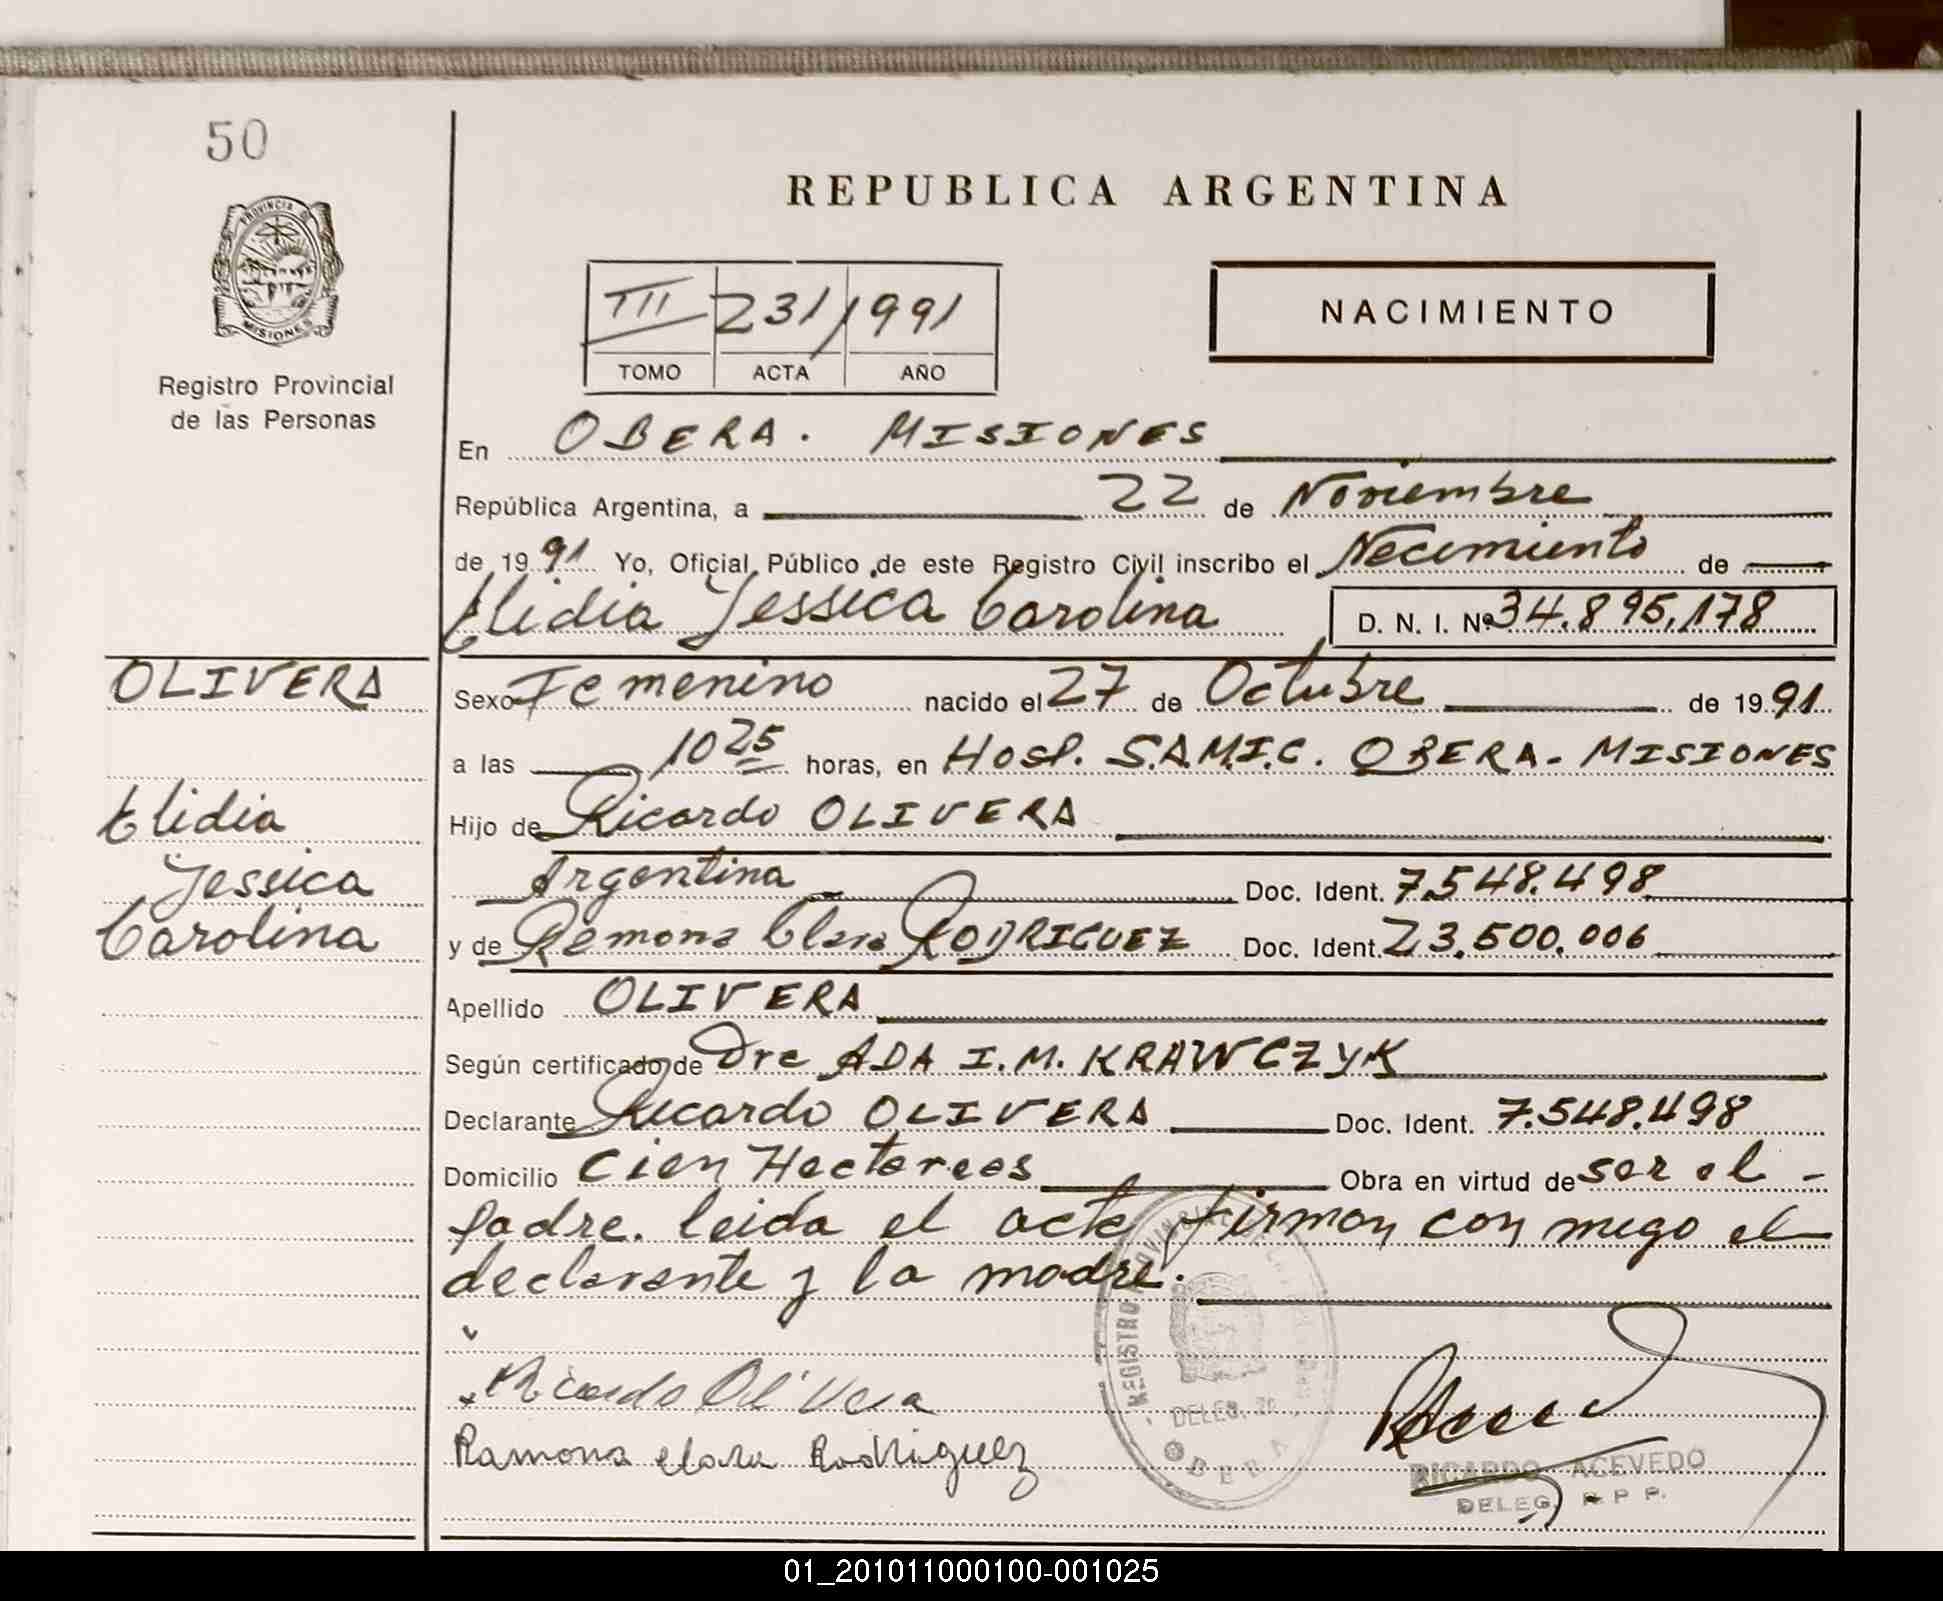 50
PROVINCIA DE
MISIONES
Registro Provincial
de las Personas
REPUBLICA ARGENTINA
III 231 1991
TOMO ACTA AÑO
NACIMIENTO
En OBERA. MISIONES
República Argentina, a 22 de Noviembre
de 1991 Yo, Oficial Público de este Registro Civil inscribo el Nacimiento de
Elidia Jessica Carolina D. N. I. Nº 34.895.178
OLIVERA
Sexo Femenino nacido el 27 de Octubre de 1991
a las 10 25 horas, en Hosp. S.A.M.I.C. OBERA - MISIONES
Elidia
Jessica
Carolina
Hijo de Ricardo OLIVERA
Argentina Doc. Ident. 7.548.498
y de Ramona Clara RODRIGUEZ Doc. Ident. 23.500.006
Apellido OLIVERA
Según certificado de Dra ADA I. M. KRAWCZYK
Declarante Ricardo OLIVERA Doc. Ident. 7.548.498
Domicilio Cien Hectareas Obra en virtud de ser el -
padre. leida el acta firman con migo el
declarante y la madre.
Ricardo Olivera
Ramona clara Rodriguez
REGISTRO PROVINCIAL
DELEG.
OBERA
RICARDO ACEVEDO
DELEG. R P P.
01_201011000100-001025